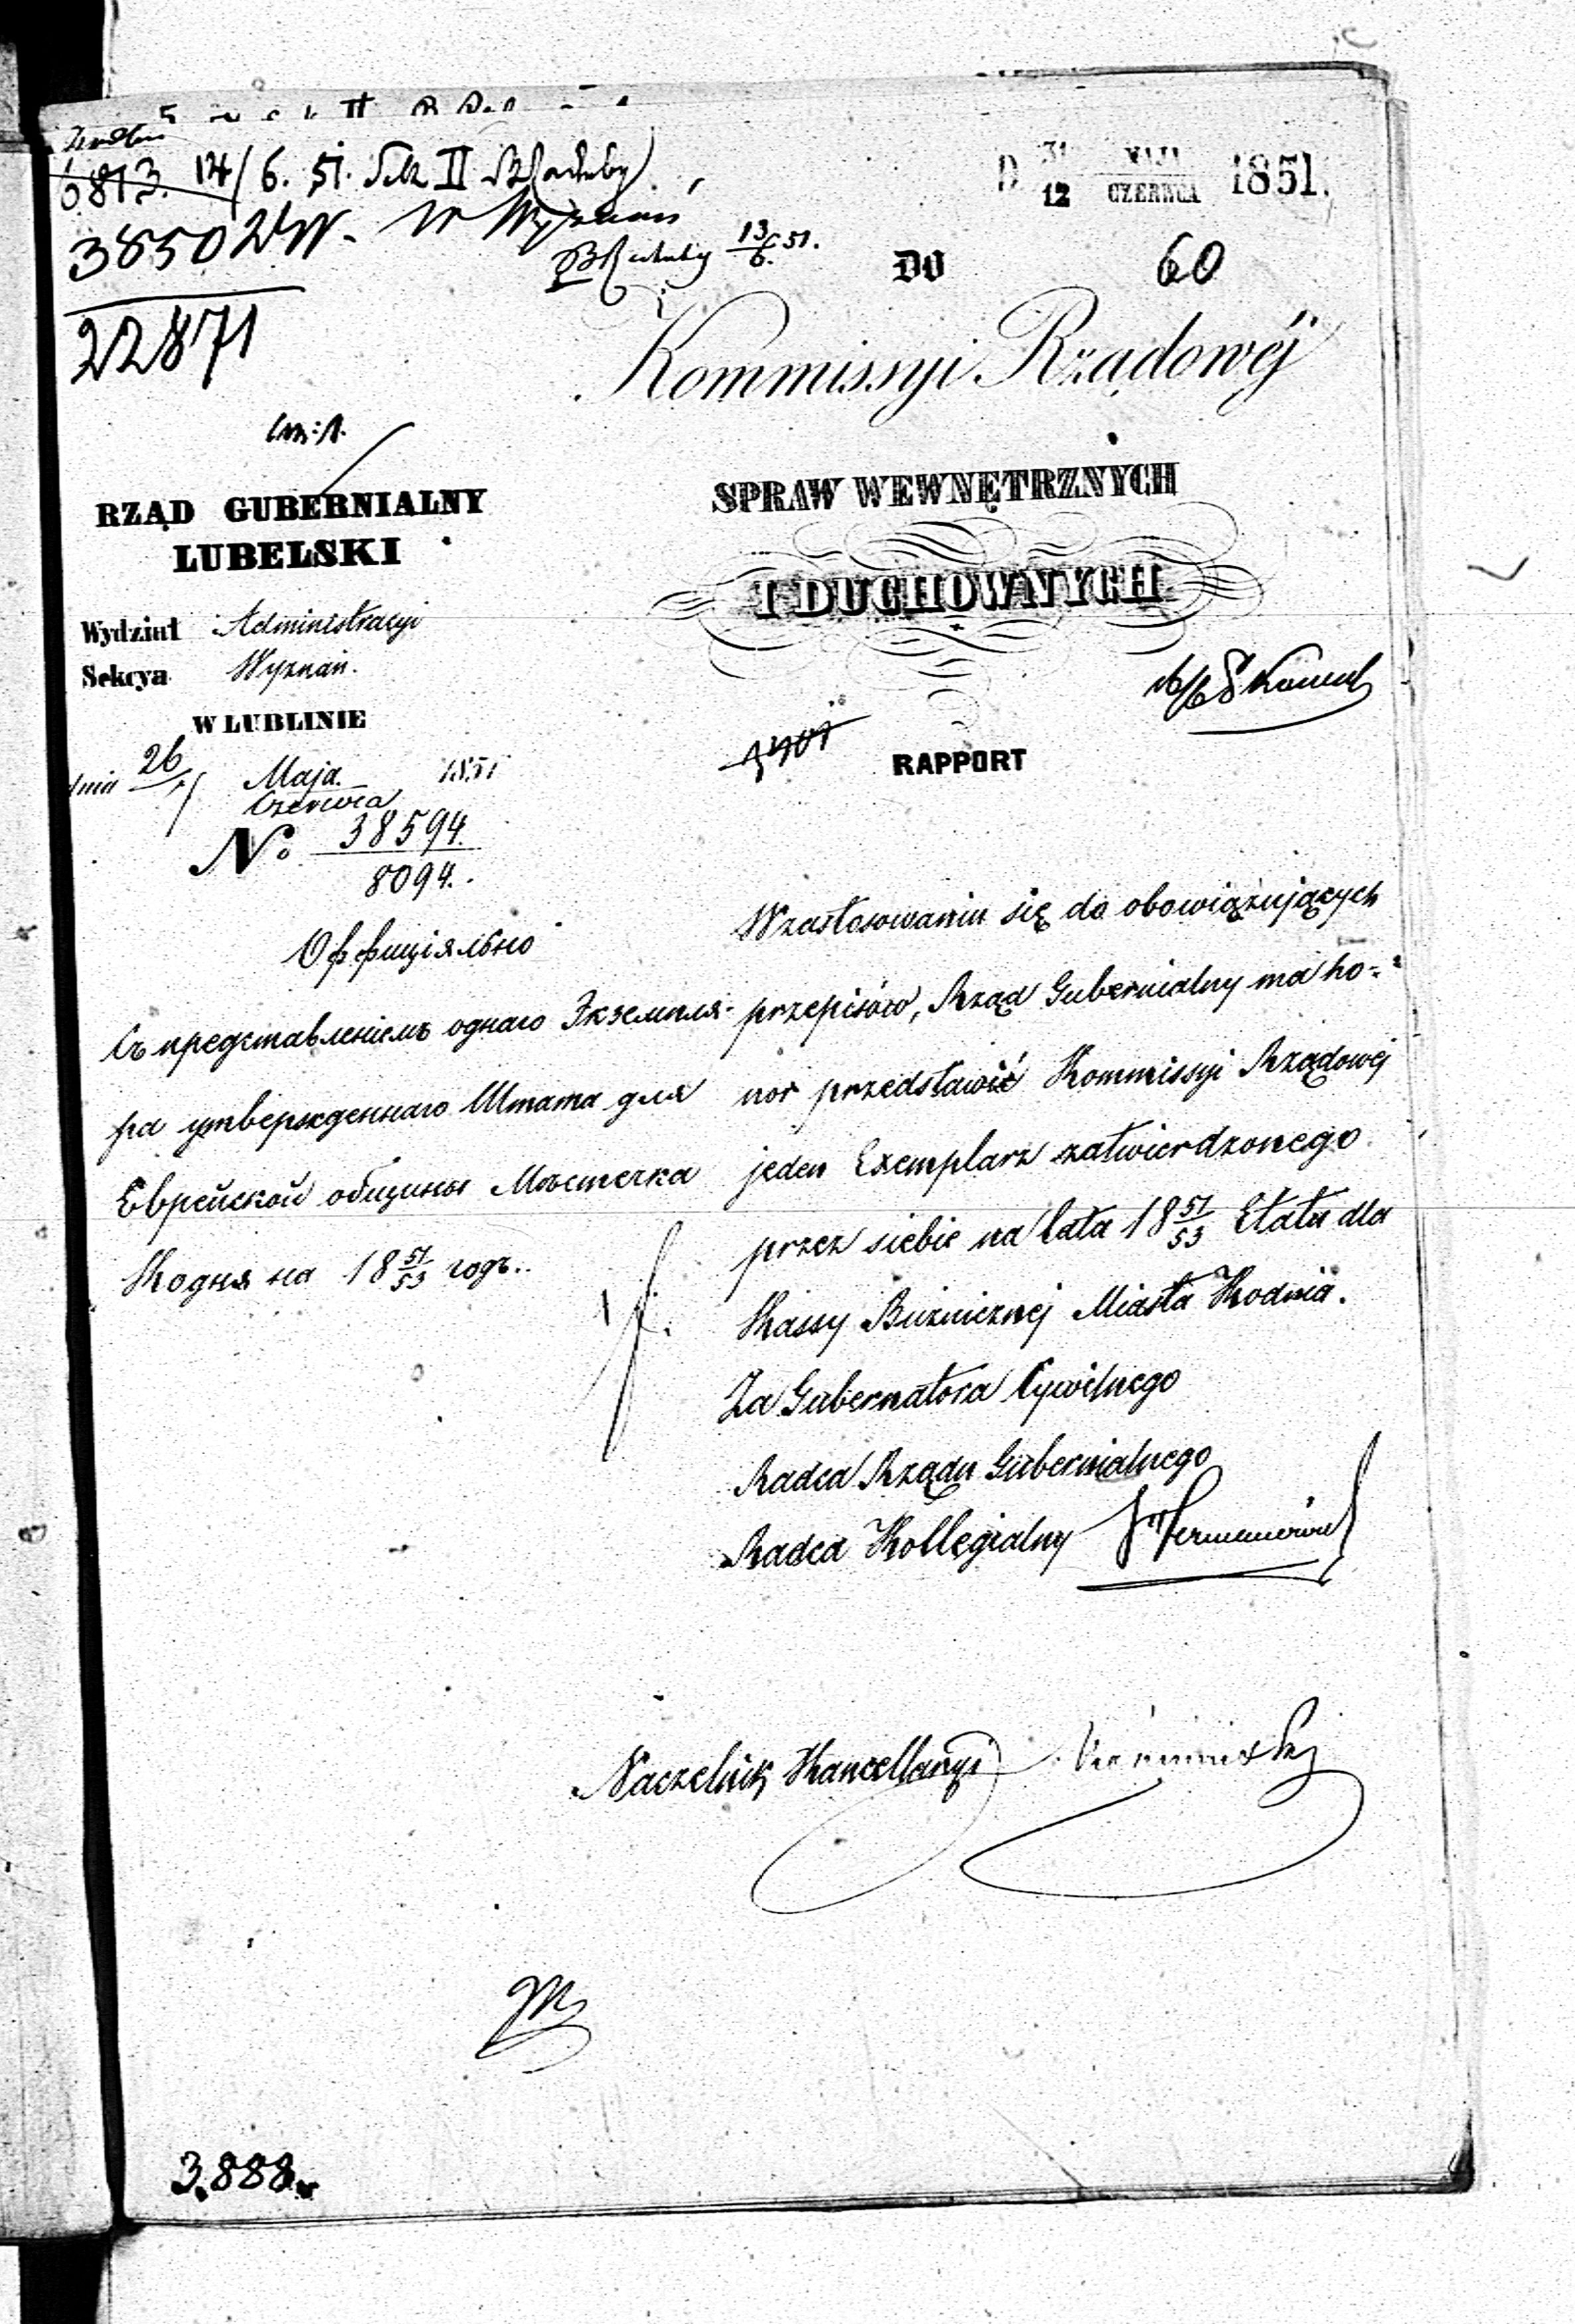 6813. 14/6. 51. Sek II
38502 W. W Wyznań
22871
13/6 51.
D 31/12 MAJA/CZERWCA 1851.
DO 60
Kommissyi Rządowéj
SPRAW WEWNĘTRZNYCH
I DUCHOWNYCH
RAPPORT
RZĄD GUBERNIALNY
LUBELSKI
Wydział Administracyi
Sekcya Wyznań.
W LUBLINIE
dnia 26/7 Maja/Czerwca 1851
No 38594/8094.
Оффиціяльно
Съ представленіемъ однаго Экземпля-
ра утвержденнаго Штата для
Еврейской общины Мѣстечка
Кодня на 18 51/53 годъ..
Wzastosowaniu się do obowiązujących
przepisów, Rząd Gubernialny ma ho-
nor przedstawić Kommissyi Rządowej
jeden Exemplarz zatwierdzonego
przez siebie na lata 18 51/53 Etatu dla
Kassy Bużnicznej Miasta Kodnia.
Za Gubernatora Cywilnego
Radca Rządu Gubernialnego
Radca Kollegialny
Naczelnik Kancellaryi
3.888.